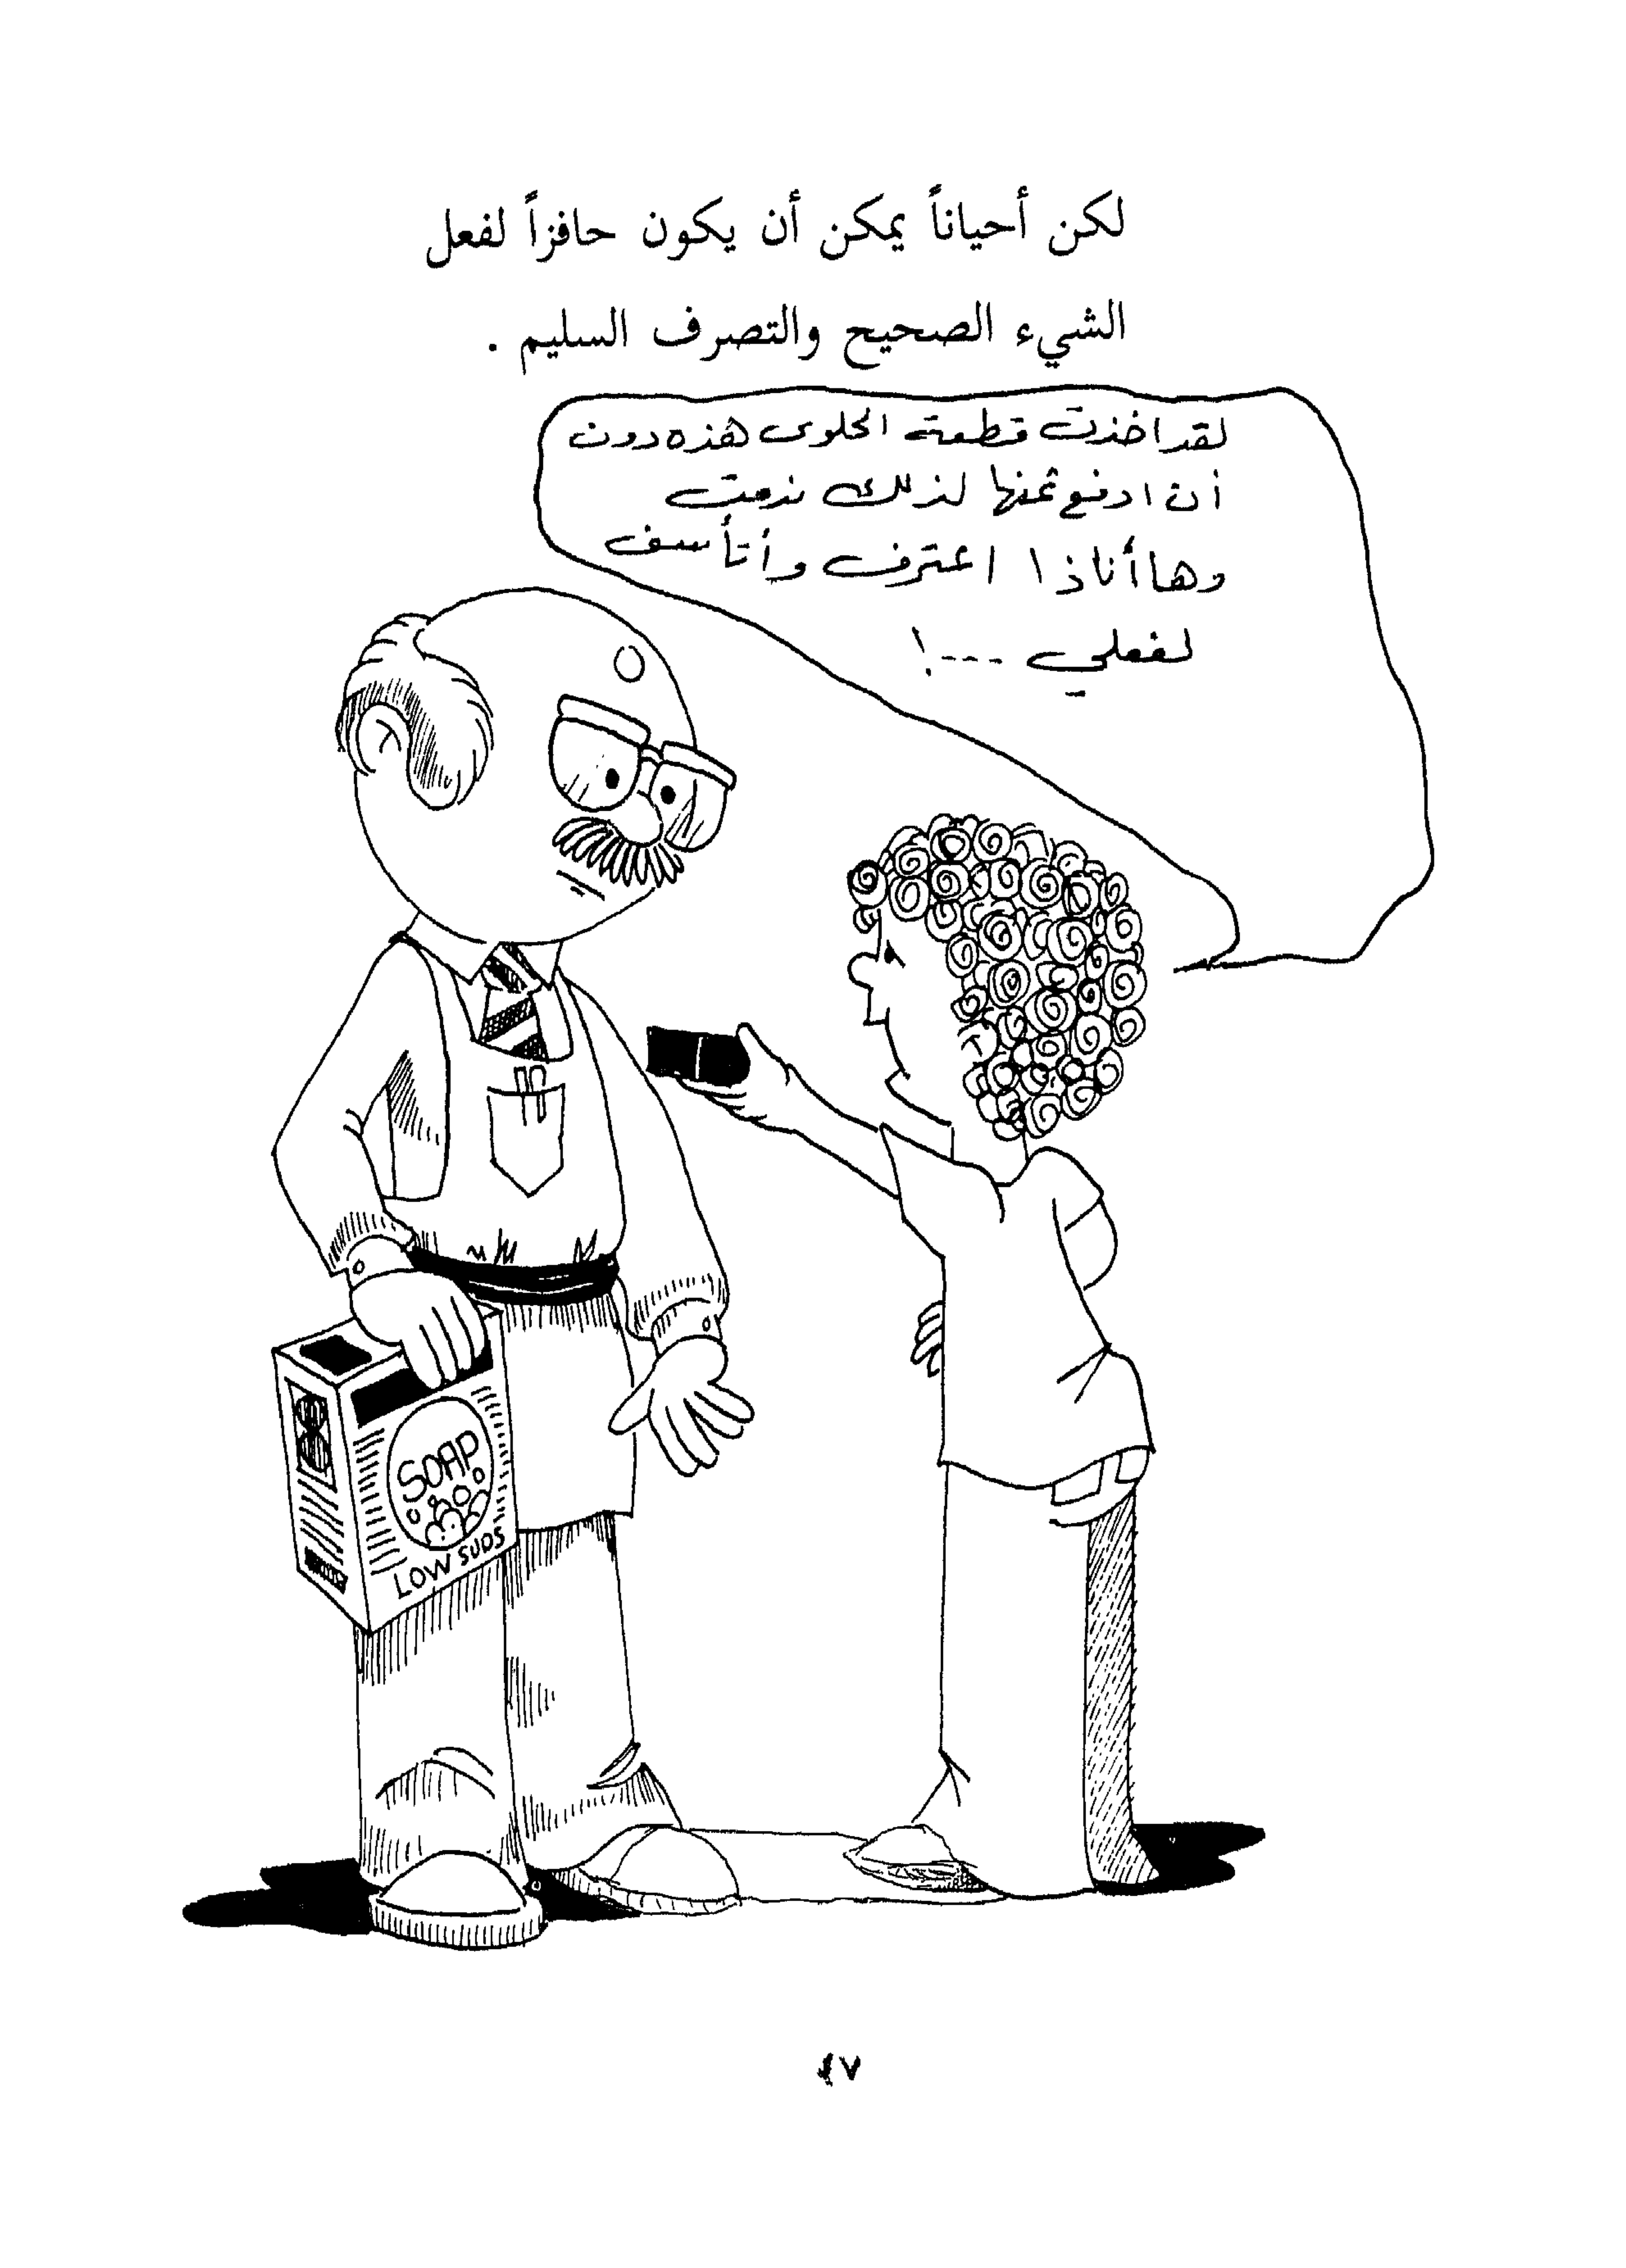 لكن أحياناً يمكن أن يكون حافزاً لفعل
الشيء الصحيح والتصرف السليم .
لقد اخذت قطعة الحلوى هذه دون
أن ادفع ثمنها لذلك ندمت
وها أناذا اعترف وأتأسف
لفعلي ---!
SOAP
LOW SUDS